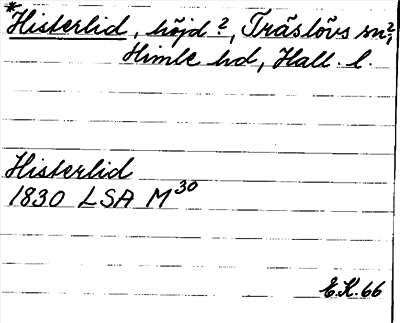 *Histerlid, höjd?, Träslövs sn?,
Himle hd, Hall. l.
Histerlid
1830 LSA M30
E.K. 66